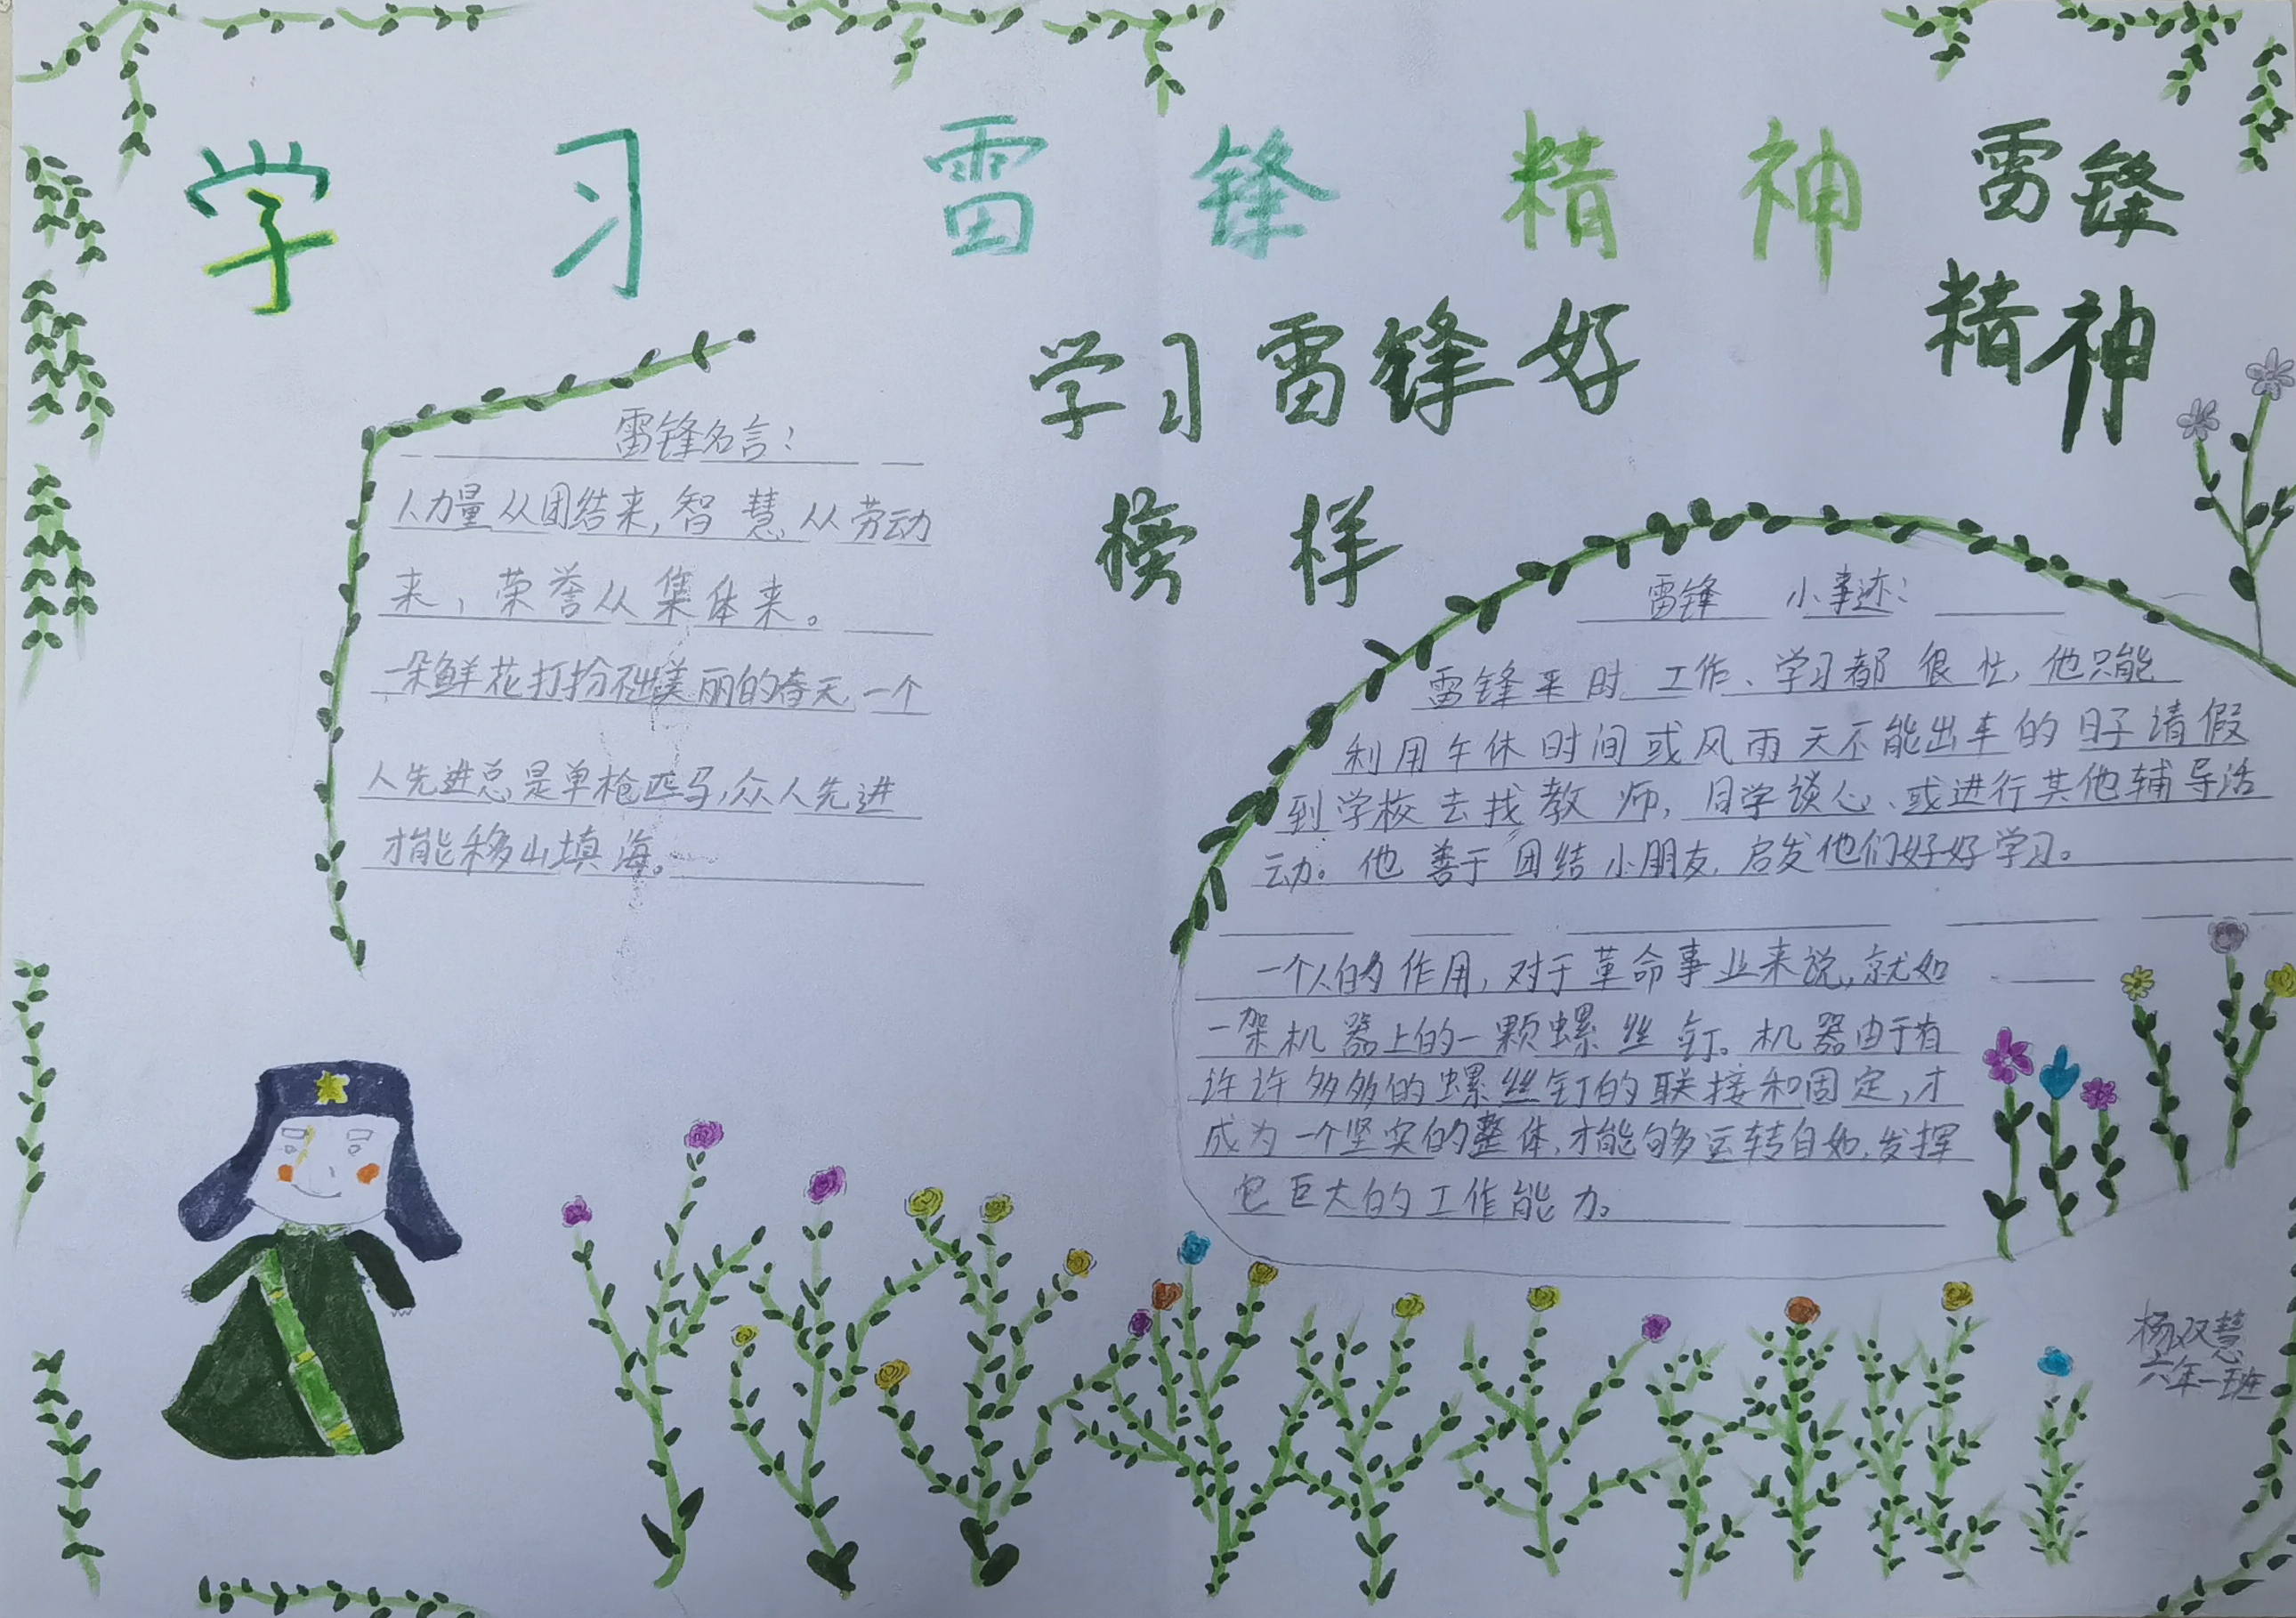 学习雷锋精神
雷锋
精神
学习雷锋好
榜样
雷锋名言:
人力量从团结来,智慧从劳动
来,荣誉从集体来。
一朵鲜花打扮不出美丽的春天一个
人先进总是单枪匹马,众人先进
才能移山填海。
雷锋 小事迹:
雷锋平时工作、学习都很忙,他只能
利用午休时间或风雨天不能出车的日子请假
到学校去找教师,同学谈心、或进行其他辅导活
动。他善于团结小朋友,启发他们好好学习。
一个人的作用,对于革命事业来说,就如
一架机器上的一颗螺丝钉。机器由于有
许许多多的螺丝钉的联接和固定,才
成为一个坚实的整体,才能够运转自如,发挥
它巨大的工作能力。
杨双慧
六年一班